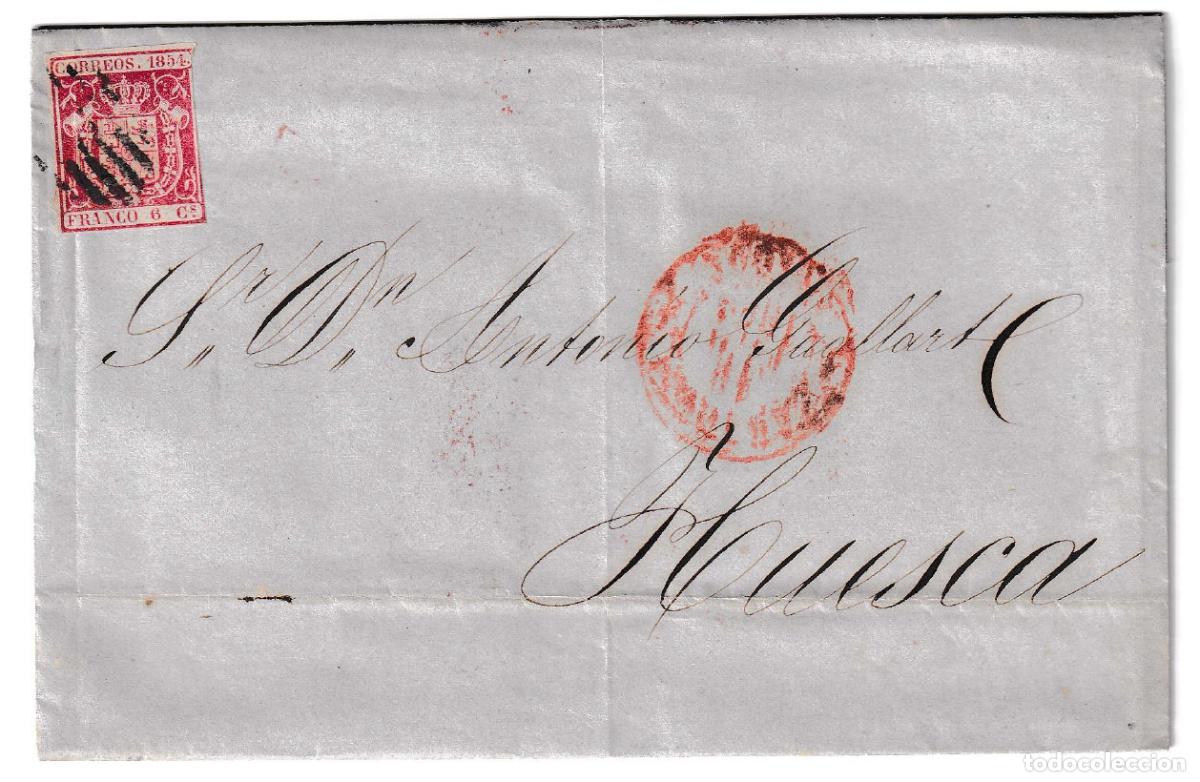 CORREOS. 1854.
FRANCO 6 Cs
Sr. Dn. Antonio Gaallart
Huesca
todocoleccion